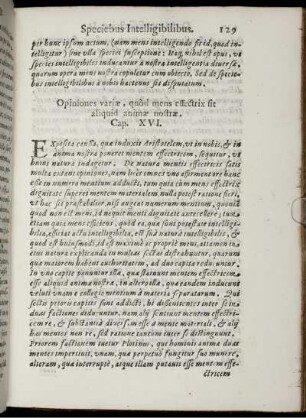 Speciebus Intelligibilibus. 129
per hunc ipsum actum, (quam mens intelligendo fit id, quod in-
telligitur) sine ulla specie susceptione: itaq; nihil est opus, ut
species intelligibiles inducantur à nostra intelligentia diversæ,
quarum opera mens nostra copuletur cum obiecto. Sed de specie-
bus intelligibilibus à nobis hactenus sit disputatum.
Opiniones variæ, quòd mens effectrix sit
aliquid animæ nostræ.
Cap. XVI.
EXposita causa, quæ induxit Aristotelem, ut in nobis, & in
anima nostra poneret mentem effectricem, sequitur, ut
huius natura indagetur. De natura mentis effectricis satis
multa extant opiniones, nam
est unum è mentium numero adducti, tum quia cùm mens effectrix
dignitate superet mentem materialem, nulla potest ratione fieri,
ut hæc sit præstabilior, nisi augeat numerum mentium, quando
quidem anima non est, ut nequit menti dignitate antecellere; tum e-
tiam quia mens efficiens, quòd ea, quæ sunt potestate intelligi-
bilia, efficiat actu intelligibilia, est sua natura intelligibilis, &
quod est huiusmodi, id est maximè ac propriè mens, attamen in
eius natura explicanda in
qua materiem habent authoritatem, ad duo capita reducuntur.
In uno capite ponuntur illa, quæ statuunt mentem effectricem
esse aliquid anima nostra, in altero, quæ eandem inducunt
veluti unam è collegio mentium à materia separatarum. Qui
sectæ prioris capitis sunt addicti, hi dissentientes inter se in
duas factiones diducuntur, nam alij sentiunt mentem effectri-
cem re, & substantia diversam esse à mente materiali, & alij
has mentes non re, sed ratione tantùm inter se distinguunt.
Priorem factionem tuetur Plotinus, qui hominis anima duas
mentes impertiit, unam, quæ perpetuò fungitur suo munere,
alteram, quæ interruptè, atque illam putavit esse mentem ef-
fectricem